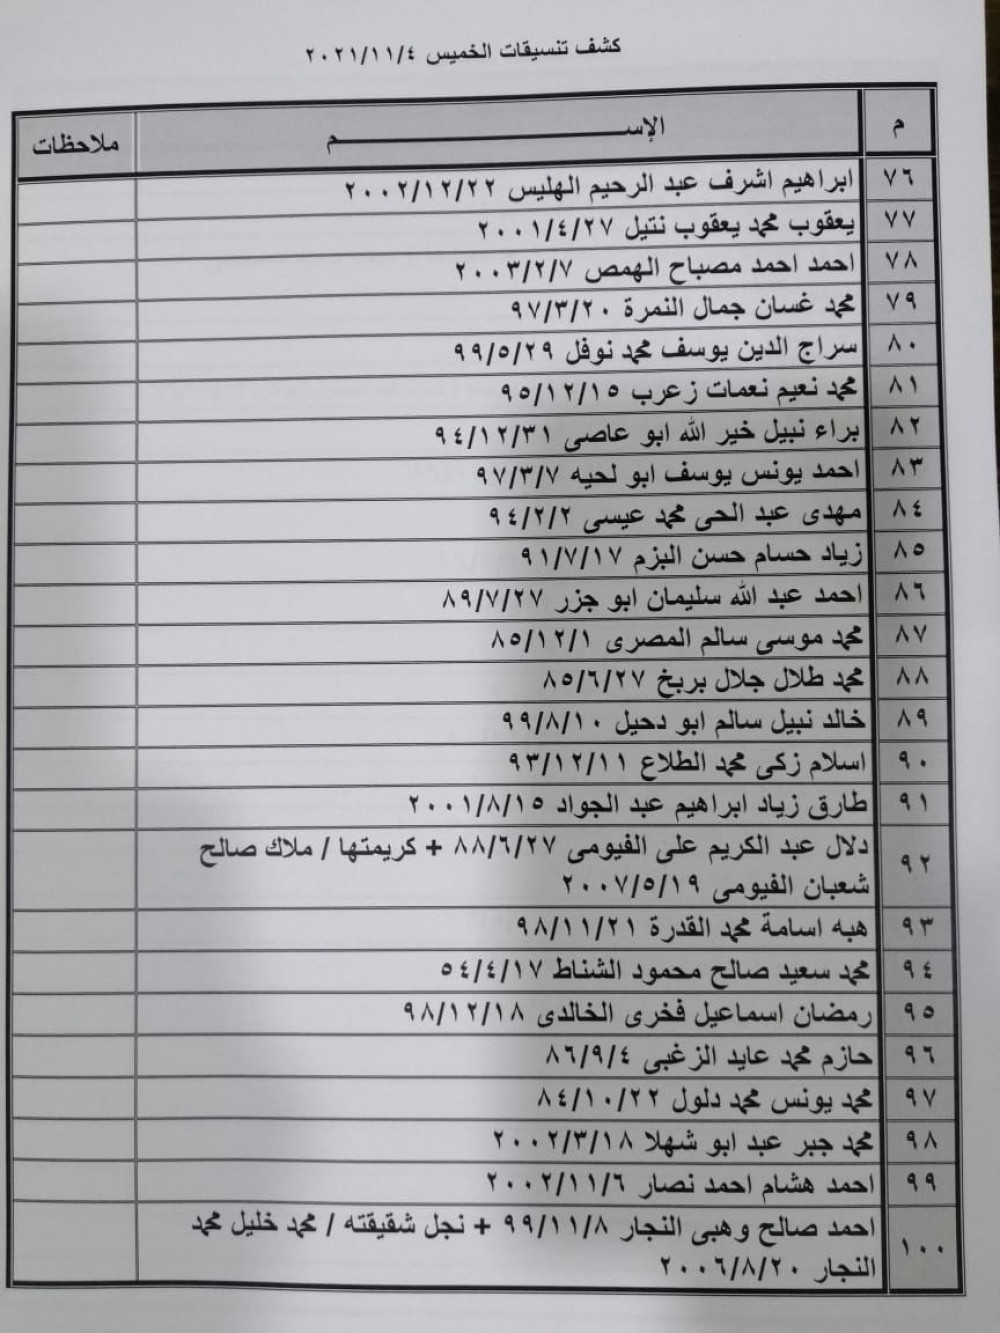 كشف تنسيقات الخميس ٢٠٢١/١١/٤
م الإســـم ملاحظات
٧٦ ابراهيم اشرف عبد الرحيم الهليس ٢٠٠٢/١٢/٢٢
٧٧ يعقوب محمد يعقوب نتيل ٢٠٠١/٤/٢٧
٧٨ احمد احمد مصباح الهمص ٢٠٠٣/٢/٧
٧٩ محمد غسان جمال النمرة ٩٧/٣/٢٠
٨٠ سراج الدين يوسف محمد نوفل ٩٩/٥/٢٩
٨١ محمد نعيم نعمات زعرب ٩٥/١٢/١٥
٨٢ براء نبيل خير الله ابو عاصى ٩٤/١٢/٣١
٨٣ احمد يونس يوسف ابو لحيه ٩٧/٣/٧
٨٤ مهدى عبد الحى محمد عيسى ٩٤/٢/٢
٨٥ زياد حسام حسن البزم ٩١/٧/١٧
٨٦ احمد عبد الله سليمان ابو جزر ٨٩/٧/٢٧
٨٧ محمد موسى سالم المصرى ٨٥/١٢/١
٨٨ محمد طلال جلال بربخ ٨٥/٦/٢٧
٨٩ خالد نبيل سالم ابو دحيل ٩٩/٨/١٠
٩٠ اسلام زكى محمد الطلاع ٩٣/١٢/١١
٩١ طارق زياد ابراهيم عبد الجواد ٢٠٠١/٨/١٥
٩٢ دلال عبد الكريم على الفيومى ٨٨/٦/٢٧ + كريمتها / ملاك صالح
شعبان الفيومى ٢٠٠٧/٥/١٩
٩٣ هبه اسامة محمد القدرة ٩٨/١١/٢١
٩٤ محمد سعيد صالح محمود الشناط ٥٤/٤/١٧
٩٥ رمضان اسماعيل فخرى الخالدى ٩٨/١٢/١٨
٩٦ حازم محمد عايد الزغبى ٨٦/٩/٤
٩٧ محمد يونس محمد دلول ٨٤/١٠/٢٢
٩٨ محمد جبر عبد ابو شهلا ٢٠٠٢/٣/١٨
٩٩ احمد هشام احمد نصار ٢٠٠٢/١١/٦
١٠٠ احمد صالح وهبى النجار ٩٩/١١/٨ + نجل شقيقته / محمد خليل محمد
النجار ٢٠٠٦/٨/٢٠